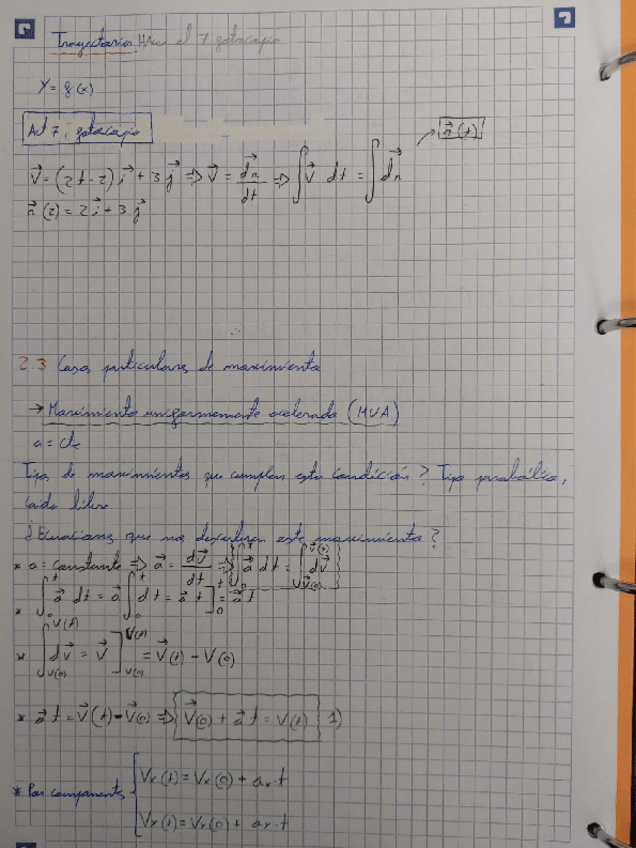 Trayectoria Hace el 7 fotocopia
Y = f(x)
Act 7, fotocopia
v⃗ = (2t-2) i⃗ + 3 j⃗ ⇒ v⃗ = dr⃗/dt ⇒ ∫ v⃗ dt = ∫ dr⃗ → r⃗(t)
r⃗(2) = 2 i⃗ + 3 j⃗
2.3 Casos particulares de movimiento
→ Movimiento uniformemente acelerado (MUA)
a = cte
Tipos de movimientos que cumplen esta condición? Tipo parabólico,
caída libre.
¿Ecuaciones que nos describen este movimiento?
* a = constante ⇒ a⃗ = dv⃗/dt ⇒ ∫₀ᵗ a⃗ dt = ∫_{v⃗(0)}^{v⃗(t)} dv⃗
* ∫₀ᵗ a⃗ dt = a⃗ ∫₀ᵗ dt = a⃗ t ]₀ᵗ = a⃗ t
* ∫_{v(0)}^{v(t)} dv⃗ = v⃗ ]_{v(0)}^{v(t)} = v⃗(t) - v(0)
* a⃗ t = v⃗(t) - v⃗(0) ⇒ v⃗(0) + a⃗ t = v(t) 1)
* Por componentes { Vx(t) = Vx(0) + ax·t
Vy(t) = Vy(0) + ay·t